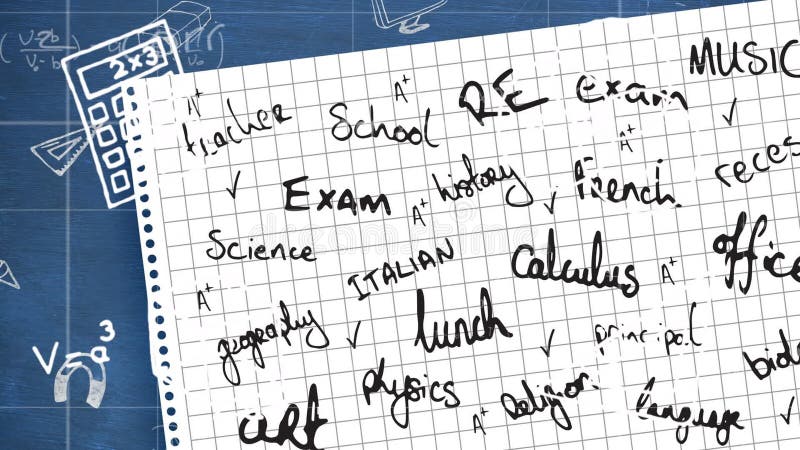 MUSIC
2x3
A+
teacher
A+
School
R.E
exam
✓
A+
✓
Exam
history
A+
✓
french
reces
Science
ITALIAN
calculus
office
A+
A+
geography
✓
lunch
✓
principal
V=a³
physics
biolo
art
A+
Religion
language